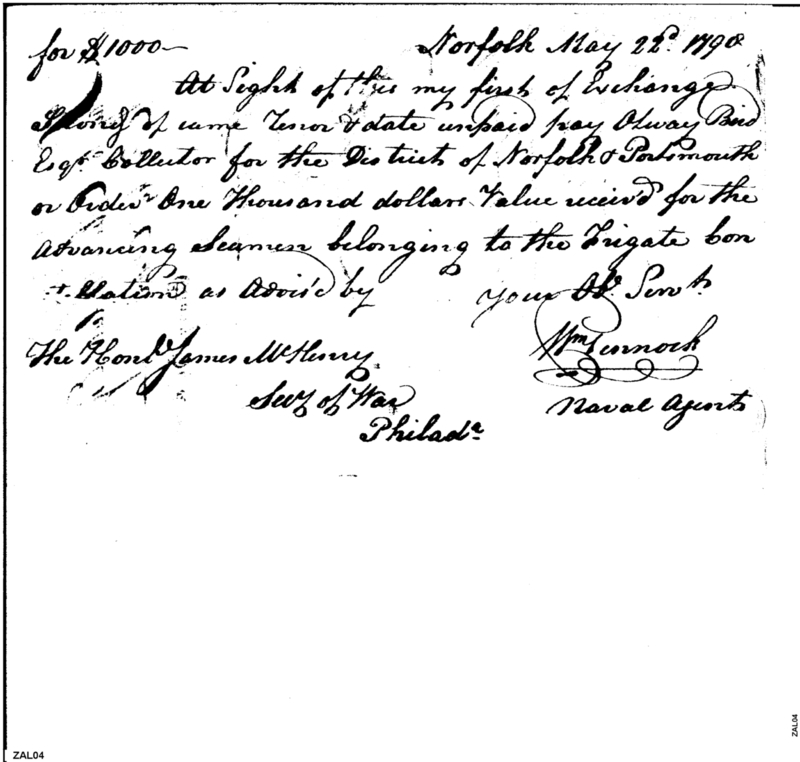 for $1000— Norfolk May 22d. 1798
At Sight of this my first of Exchange
Second of same Tenor & date unpaid pay Otway Bird
Esqr. Collector for the District of Norfolk & Portsmouth
or Order One Thousand dollars Value receiv'd for the
Advancing Seamen belonging to the Frigate Con
stellation as Advis'd by your Ob. Servt.
Wm Pennock
The Honble. James McHenry
Secy of War Naval Agent
Philada.
ZAL04
ZAL04